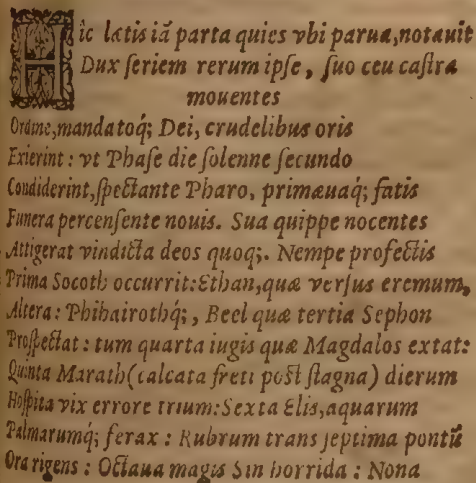 Hic lætis iã parta quies vbi parua, notauit
Dux ſeriem rerum ipſe, ſuo ceu caſtra
mouentes
Ordine, mandatoq́; Dei, crudelibus oris
Exierint: vt Phaſe die ſolenne ſecundo
Condiderint, ſpectante Pharo, primæuaq́; fatis
Funera percenſente nouis. Sua quippe nocentes
Attigerat vindicta deos quoq;. Nempe profectis
Prima Socoth occurrit: Ethan, quæ verſus eremum,
Altera: Phihairothq́;, Beel quæ tertia Sephon
Proſpectat: tum quarta iugis quæ Magdalos extat:
Quinta Marath (calcata freti poſt ſtagna) dierum
Hoſpita vix errore trium: Sexta Elis, aquarum
Palmarumq́; ferax: Rubrum trans ſeptima pontũ
Ora rigens: Octaua magis Sin horrida: Nona